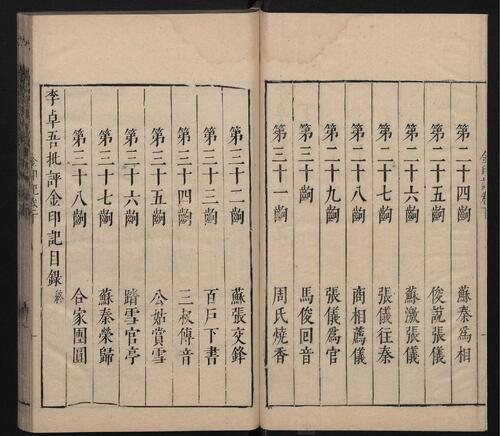 第二十四齣 蘇秦爲相
第二十五齣 俊説張儀
第二十六齣 蘇激張儀
第二十七齣 張儀往秦
第二十八齣 商相薦儀
第二十九齣 張儀爲官
第三十齣 馬俊回音
第三十一齣 周氏燒香
第三十二齣 蘇張交鋒
第三十三齣 百戸下書
第三十四齣 三叔傳音
第三十五齣 公姑賞雪
第三十六齣 踏雪官亭
第三十七齣 蘇秦榮歸
第三十八齣 合家團圓
李卓吾批評金印記目錄 終